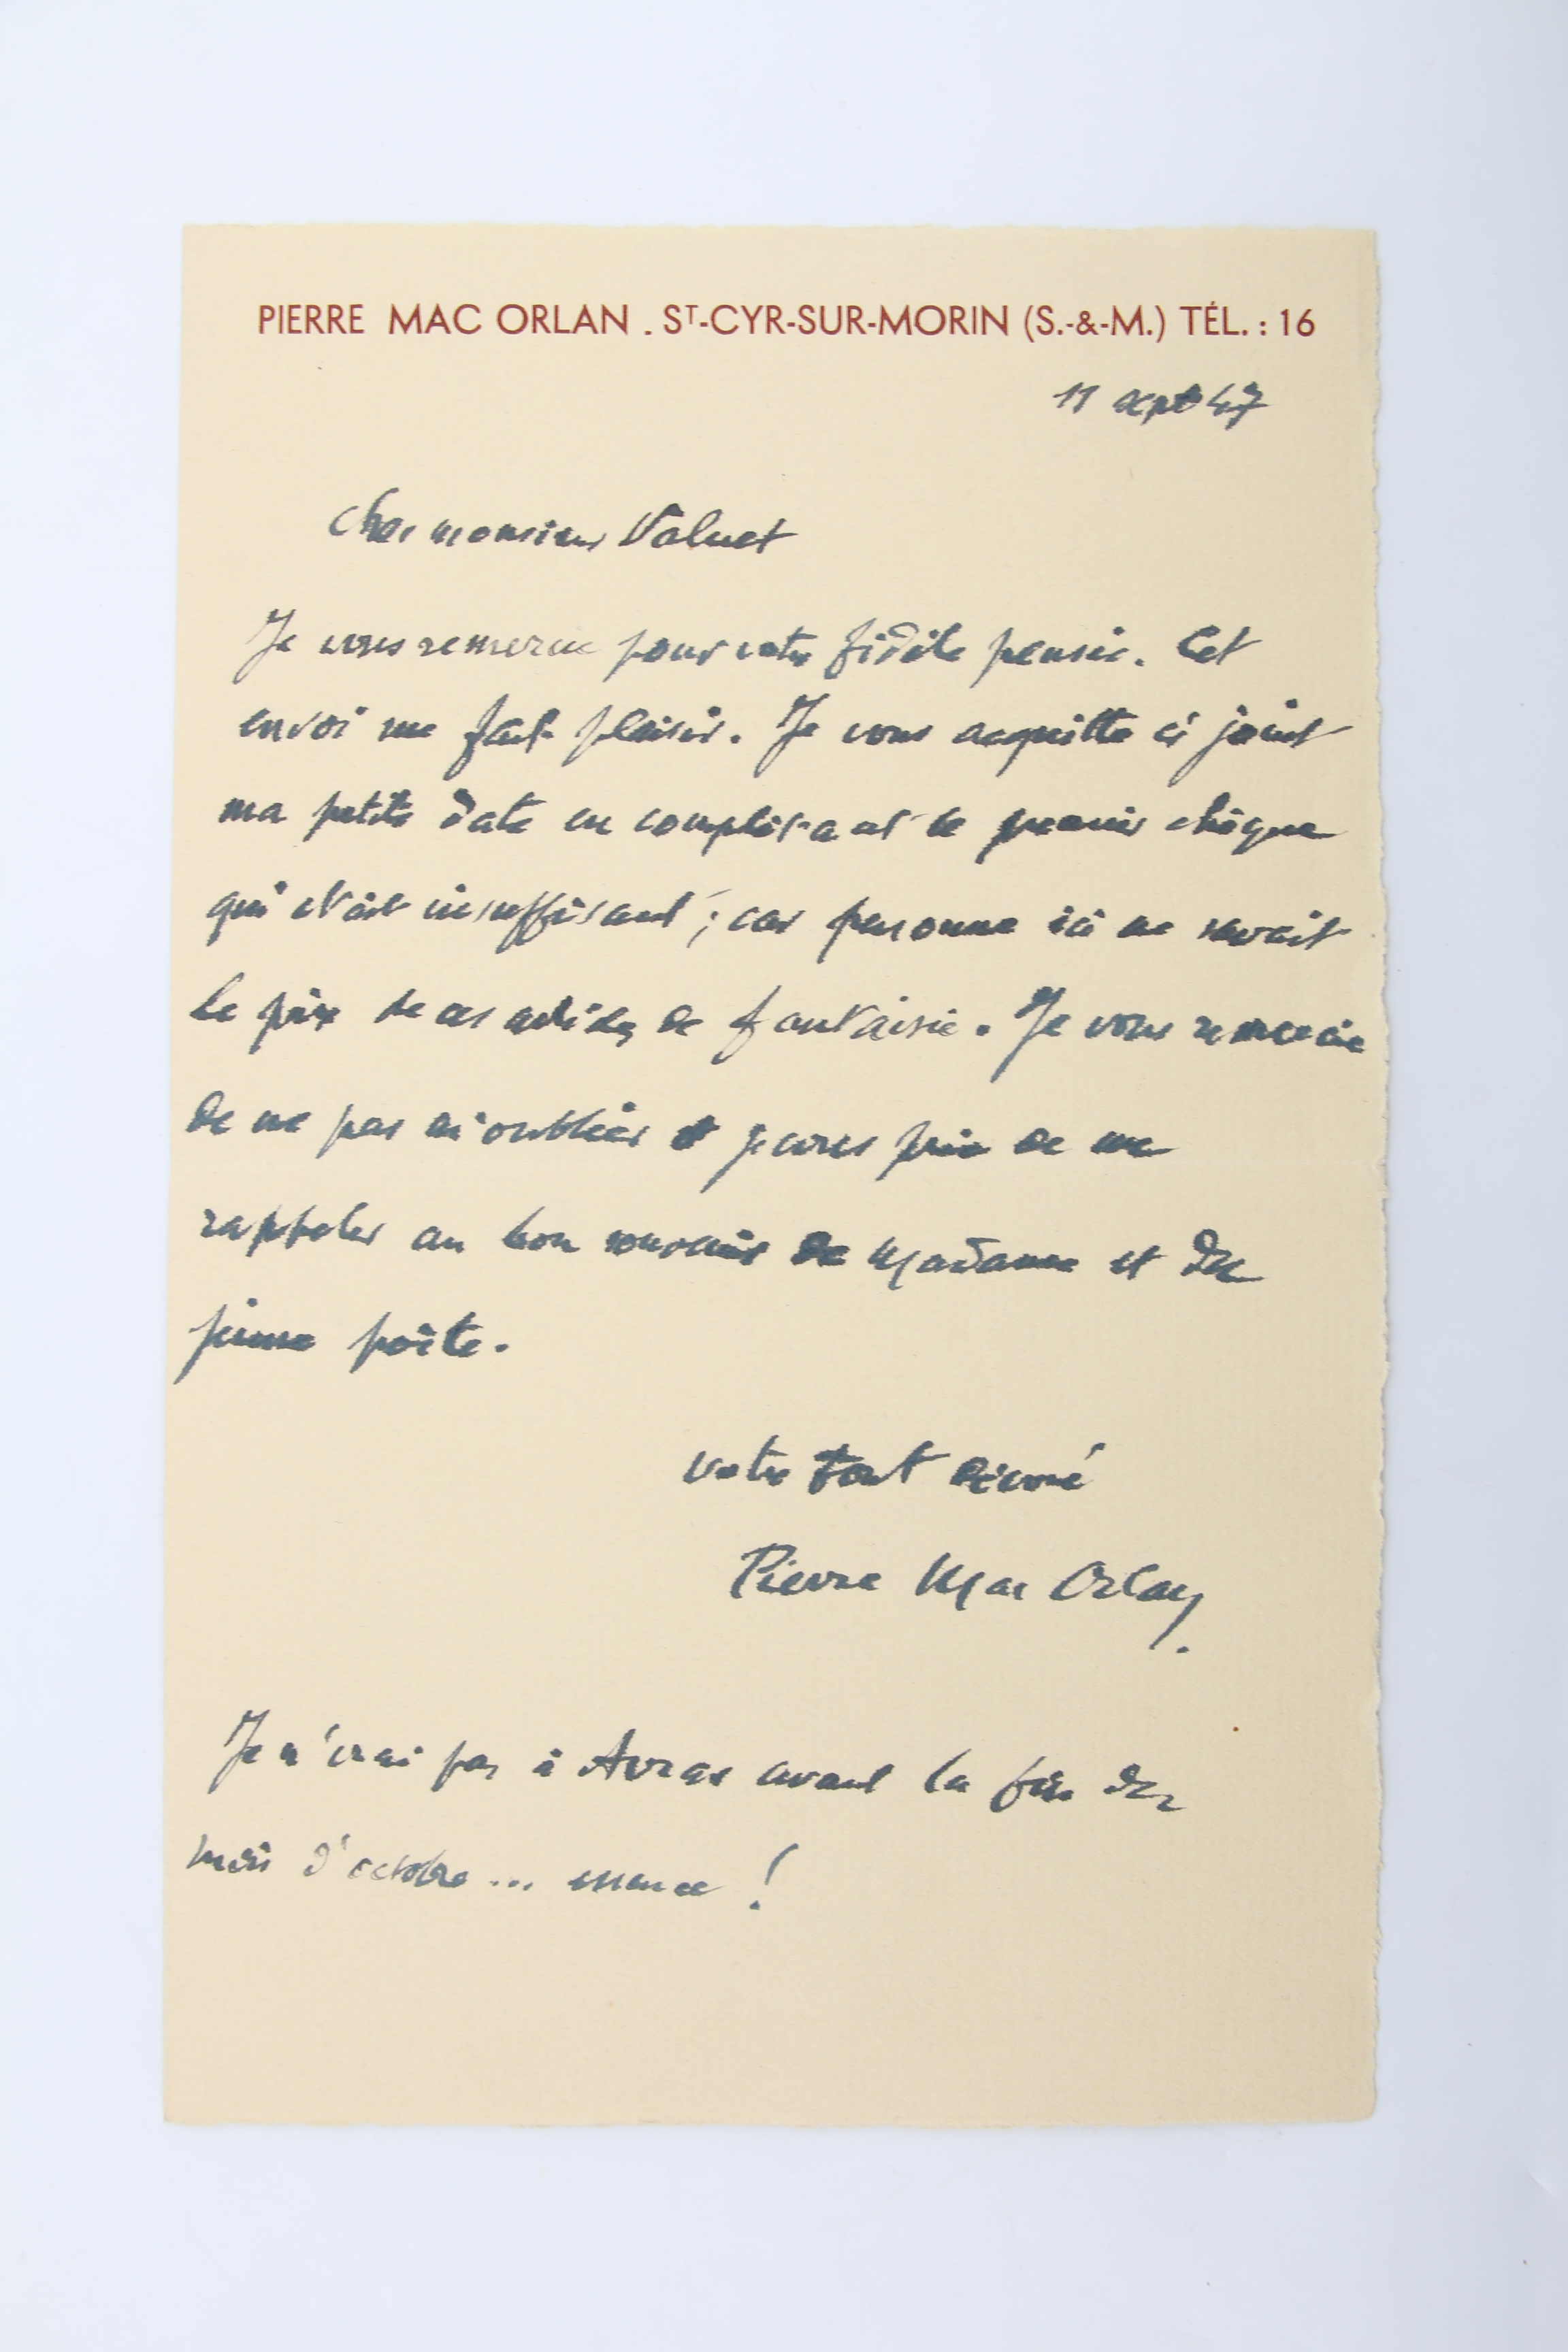 PIERRE MAC ORLAN . ST-CYR-SUR-MORIN (S.-&-M.) TÉL. : 16
11 sept 47
Cher monsieur Valuet
Je vous remercie pour votre fidèle pensée. Cet
envoi me fait plaisir. Je vous acquitte ci joint
ma petite dette en complétant le premier chèque
qui était insuffisant ; car personne ici ne savait
le prix de ces articles de fantaisie. Je vous remercie
de ne pas m'oublier et je vous prie de me
rappeler au bon souvenir de Madame et du
jeune poète.
votre tout dévoué
Pierre Mac Orlan
Je n'irai pas à Arras avant la fin du
mois d'octobre... essence !